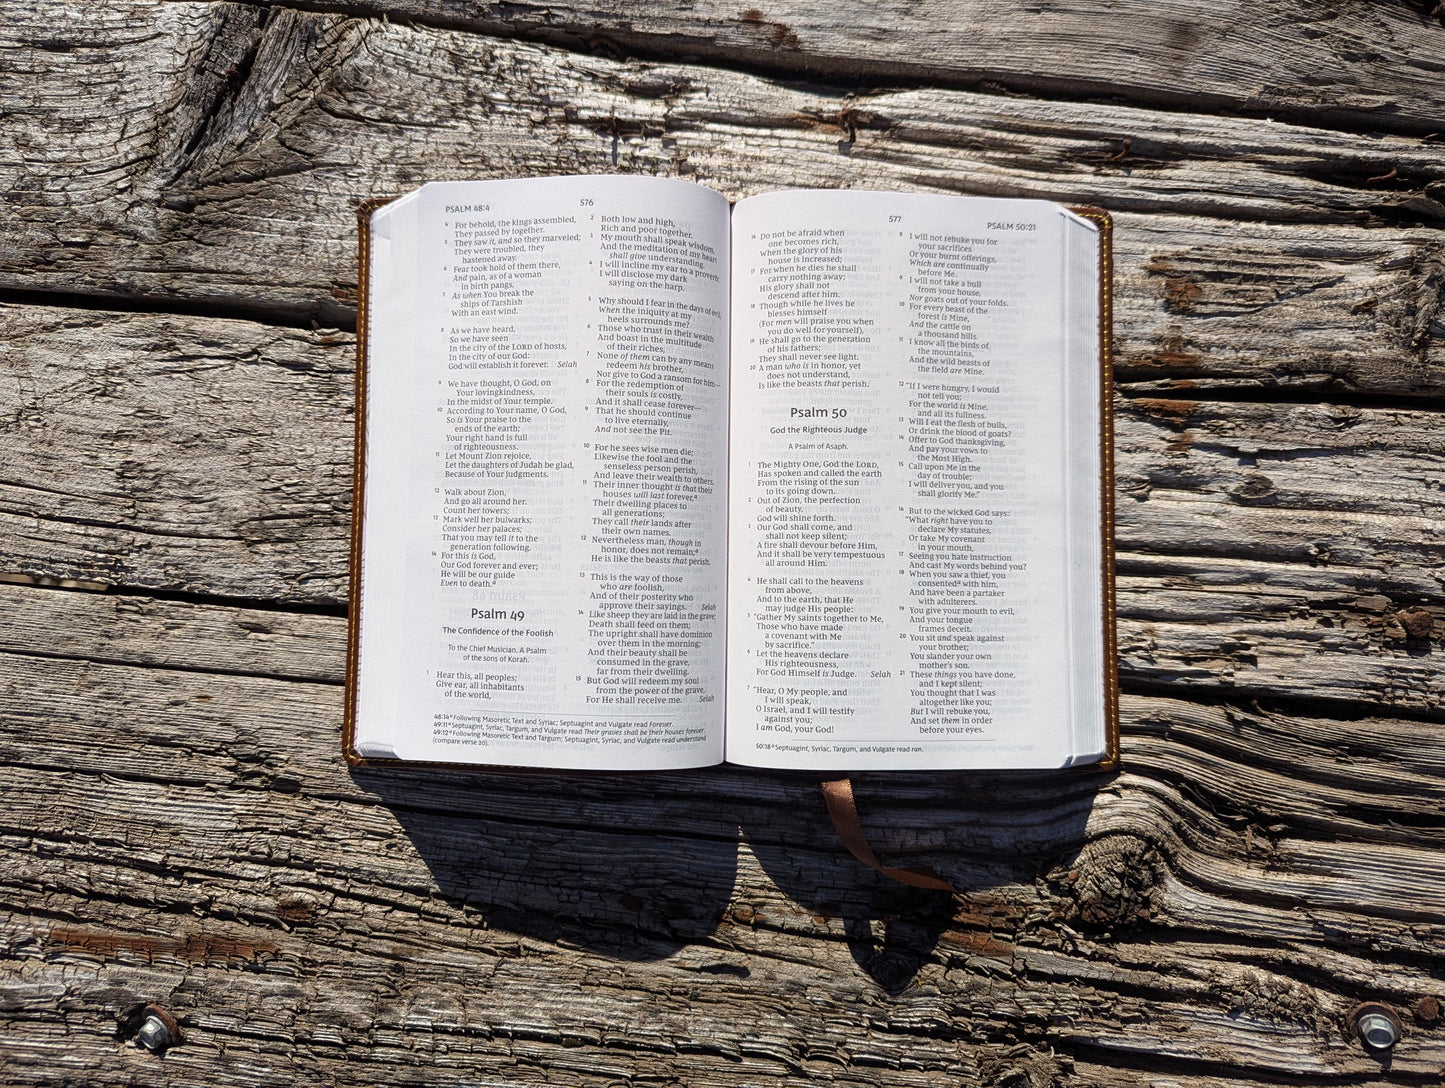 PSALM 48:4
576
4 For behold, the kings assembled,
They passed by together.
5 They saw it, and so they marveled;
They were troubled, they
hastened away.
6 Fear took hold of them there,
And pain, as of a woman
in birth pangs,
7 As when You break the
ships of Tarshish
With an east wind.
8 As we have heard,
So we have seen
In the city of the LORD of hosts,
In the city of our God:
God will establish it forever. Selah
9 We have thought, O God, on
Your lovingkindness,
In the midst of Your temple.
10 According to Your name, O God,
So is Your praise to the
ends of the earth;
Your right hand is full
of righteousness.
11 Let Mount Zion rejoice,
Let the daughters of Judah be glad,
Because of Your judgments.
12 Walk about Zion,
And go all around her.
Count her towers;
13 Mark well her bulwarks;
Consider her palaces;
That you may tell it to the
generation following.
14 For this is God,
Our God forever and ever;
He will be our guide
Even to death.a
Psalm 49
The Confidence of the Foolish
To the Chief Musician. A Psalm
of the sons of Korah.
1 Hear this, all peoples;
Give ear, all inhabitants
of the world,
2 Both low and high,
Rich and poor together.
3 My mouth shall speak wisdom,
And the meditation of my heart
shall give understanding.
4 I will incline my ear to a proverb;
I will disclose my dark
saying on the harp.
5 Why should I fear in the days of evil,
When the iniquity at my
heels surrounds me?
6 Those who trust in their wealth
And boast in the multitude
of their riches,
7 None of them can by any means
redeem his brother,
Nor give to God a ransom for him—
8 For the redemption of
their souls is costly,
And it shall cease forever—
9 That he should continue
to live eternally,
And not see the Pit.
10 For he sees wise men die;
Likewise the fool and the
senseless person perish,
And leave their wealth to others.
11 Their inner thought is that their
houses will last forever,a
Their dwelling places to
all generations;
They call their lands after
their own names.
12 Nevertheless man, though in
honor, does not remain;a
He is like the beasts that perish.
13 This is the way of those
who are foolish,
And of their posterity who
approve their sayings. Selah
14 Like sheep they are laid in the grave;
Death shall feed on them;
The upright shall have dominion
over them in the morning;
And their beauty shall be
consumed in the grave,
far from their dwelling.
15 But God will redeem my soul
from the power of the grave,
For He shall receive me. Selah
48:14 a Following Masoretic Text and Syriac; Septuagint and Vulgate read Forever.
49:11 a Septuagint, Syriac, Targum, and Vulgate read Their graves shall be their houses forever.
49:12 a Following Masoretic Text and Targum; Septuagint, Syriac, and Vulgate read understand
(compare verse 20).
577
PSALM 50:21
16 Do not be afraid when
one becomes rich,
When the glory of his
house is increased;
17 For when he dies he shall
carry nothing away;
His glory shall not
descend after him.
18 Though while he lives he
blesses himself
(For men will praise you when
you do well for yourself),
19 He shall go to the generation
of his fathers;
They shall never see light.
20 A man who is in honor, yet
does not understand,
Is like the beasts that perish.
Psalm 50
God the Righteous Judge
A Psalm of Asaph.
1 The Mighty One, God the LORD,
Has spoken and called the earth
From the rising of the sun
to its going down.
2 Out of Zion, the perfection
of beauty,
God will shine forth.
3 Our God shall come, and
shall not keep silent;
A fire shall devour before Him,
And it shall be very tempestuous
all around Him.
4 He shall call to the heavens
from above,
And to the earth, that He
may judge His people:
5 "Gather My saints together to Me,
Those who have made
a covenant with Me
by sacrifice."
6 Let the heavens declare
His righteousness,
For God Himself is Judge. Selah
7 "Hear, O My people, and
I will speak,
O Israel, and I will testify
against you;
I am God, your God!
8 I will not rebuke you for
your sacrifices
Or your burnt offerings,
Which are continually
before Me.
9 I will not take a bull
from your house,
Nor goats out of your folds.
10 For every beast of the
forest is Mine,
And the cattle on
a thousand hills.
11 I know all the birds of
the mountains,
And the wild beasts of
the field are Mine.
12 "If I were hungry, I would
not tell you;
For the world is Mine,
and all its fullness.
13 Will I eat the flesh of bulls,
Or drink the blood of goats?
14 Offer to God thanksgiving,
And pay your vows to
the Most High.
15 Call upon Me in the
day of trouble;
I will deliver you, and you
shall glorify Me."
16 But to the wicked God says:
"What right have you to
declare My statutes,
Or take My covenant
in your mouth,
17 Seeing you hate instruction
And cast My words behind you?
18 When you saw a thief, you
consenteda with him,
And have been a partaker
with adulterers.
19 You give your mouth to evil,
And your tongue
frames deceit.
20 You sit and speak against
your brother;
You slander your own
mother's son.
21 These things you have done,
and I kept silent;
You thought that I was
altogether like you;
But I will rebuke you,
And set them in order
before your eyes.
50:18 a Septuagint, Syriac, Targum, and Vulgate read ran.